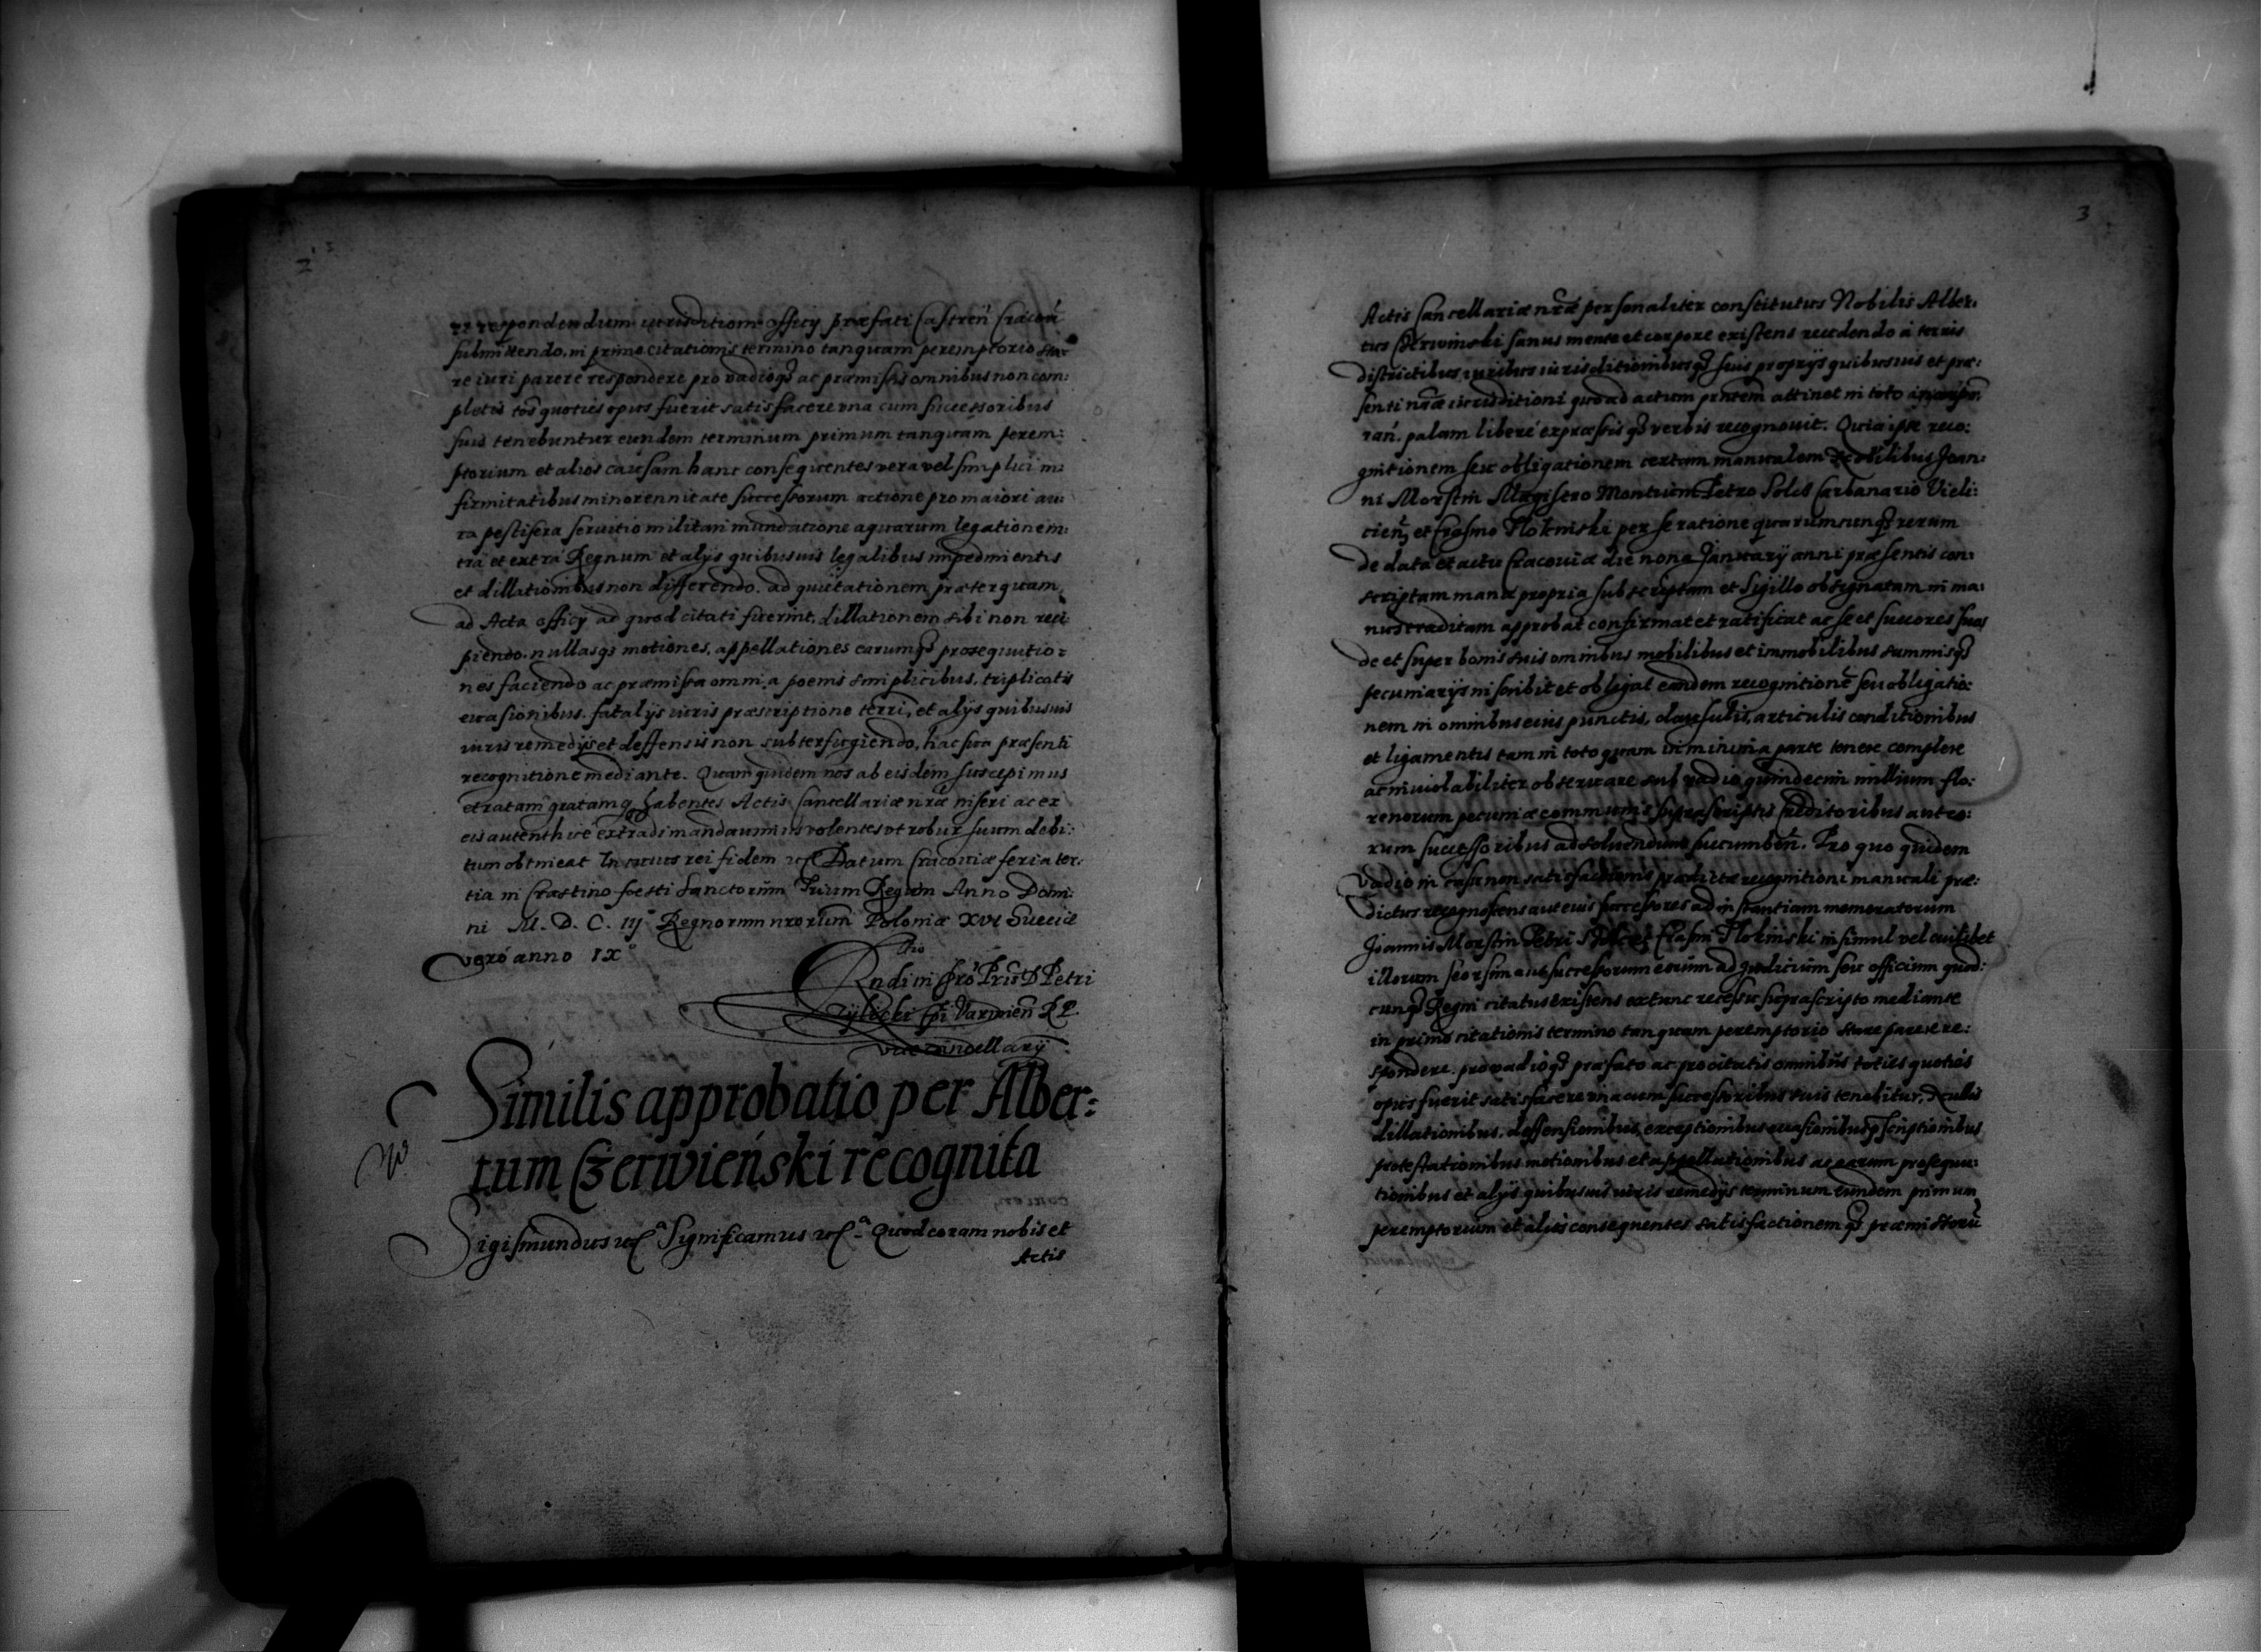 re respondendum iurisditioni officÿ præfati Castreñ Cracoviẽ
submittendo, in primo citationis termino tanquam peremptorio sta:
re iuri parere respondere pro vadioqȝ ac præmissis omnibus non com:
pletis tos quoties opus fuerit satisfacere vna cum successoribus
suis tenebuntur eundem terminum primum tanquam perem:
ptorium et alios causam hanc consequentes vera vel simplici in:
firmitatibus minorennitate successorum actione pro maiori au:
ra pestifera servitio militari inundatione aquarum legatione in:
tra et extra Regnum et alijs quibusuis legalibus impedimentis
et dillationibus non differendo. ad quietationem præterquam
ad Acta officÿ ad quod citati fuerint, dillationem sibi non reci:
piendo. nullasqȝ motiones, appellationes earumqȝ prosequutio:
nes faciendo ac præmissa omnia poenis simplicibus, triplicatis
euasionibus. fatalijs iuris præscriptione terri, et alijs quibusuis
iuris remedijs et deffensis non subterfugiendo, hac sua præsenti
recognitione mediante. Quam quidem nos ab eisdem suscepimus
et ratam gratamqȝ habentes Actis Cancellariæ nræ inseri ac ex
eis authenthice extradi mandauimus volentes vt robur suum debi:
tum obtineat In cuius rei fidem etc Datum Cracoviæ feria ter:
tia in Crastino foesti Sanctorum Trium Regum Anno Domi:
ni M. D. C. IIJ° Regnorum nrorum Poloniæ XVI Sueciæ
vero anno IX°
Rndi in Chro Pris D Petri
Tylicki Epi Varmieñ R P.
vicecancellarij
Similis approbatio per Alber:
tum Czerwieński recognita
Sigismundus etc Significamus etc Quod coram nobis et
Actis
3
Actis Cancellariæ nræ personaliter constitutus Nobilis Alber:
tus Czerwinski sanus mente et corpore existens recedendo a terris
districtibus iuribus iurisditionibusqȝ suis proprijs quibusuis et præ:
senti nræ iurisditioni quo ad actum pntem attinet in toto incorpo:
rañ. palam libere expressisqȝ verbis recognouit. Quia ipse reco:
gnitionem seu obligationem certam manualem Nobilibus Joan:
ni Morstin Magistro Montium Petro Carbanario Vieli:
cieñ et Erasmo Tlokinski per se ratione quarumcunqȝ rerum
de data et actu Cracoviæ die nona Januarÿ anni præsentis con:
scriptam manu propria subscriptam et Sigillo obsignatam in ma:
nus traditam approbat confirmat et ratificat ac se et succores suos
de et super bonis suis omnibus mobilibus et immobilibus summisqȝ
pecuniarijs inscribit et obligat eandem recognitionẽ seu obligatio:
nem in omnibus eius punctis, clausulis, articulis conditionibus
et ligamentis tam in toto quam in minima parte tenere complere
ac inuiolabiliter obseruare sub vadio quindecim millium flo:
renorum pecuniæ communis suprascriptis creditoribus aut eo:
rum successoribus ad soluendum succumbeñ. Pro quo quidem
vadio in casu non satisfactionis prædictæ recognitioni manuali præ:
dictus recognoscens aut eius successores ad instantiam memoratorum
Joannis Morstin Petri Erasmi Tlokinski insimul vel cuilibet
illorum seorsim aut successorum eorum ad Judicium seu officium quod:
cunqȝ Regni citatus existens ex tunc recessu suprascripto mediante
in primo citationis termino tanquam peremptorio stare parere re:
spondere. pro vadioqȝ præfato ac procitatis omnibus toties quoties
opus fuerit satisfacere vna cum successoribus suis tenebitur,
dillationibus, deffensionibus, exceptionibus euasionibus pscriptionibus
protestationibus motionibus et appellationibus ac earum prosequu:
tionibus et alijs quibusuis iuris remedijs terminum eundem primum
peremptorium et alios consequentes satisfactionemqȝ præmissorũ